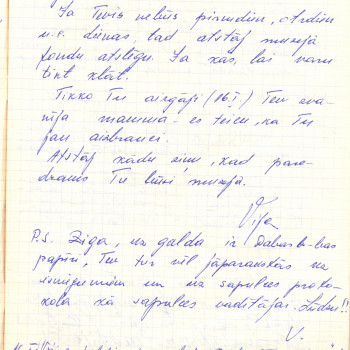 Ja Tevis nebūs pirmdien, otrdien
u.c. dienās, tad atstāj muzejā
fondu atslēgu. Ja kas, lai varu
tikt klāt.
Tikko Tu aizgāji (16.I.) Tev zva-
nīja mamma - es teicu, ka Tu
jau aizbrauci.
Atstāj kādu ziņu, kad pare-
dzams Tu būsi muzejā.
P.S. Ziga, uz galda ir
papīri, Tev tur vēl jāparakstās uz
un uz sapulces proto-
kola kā sapulces vadītājai. Lūdzu!!
V.